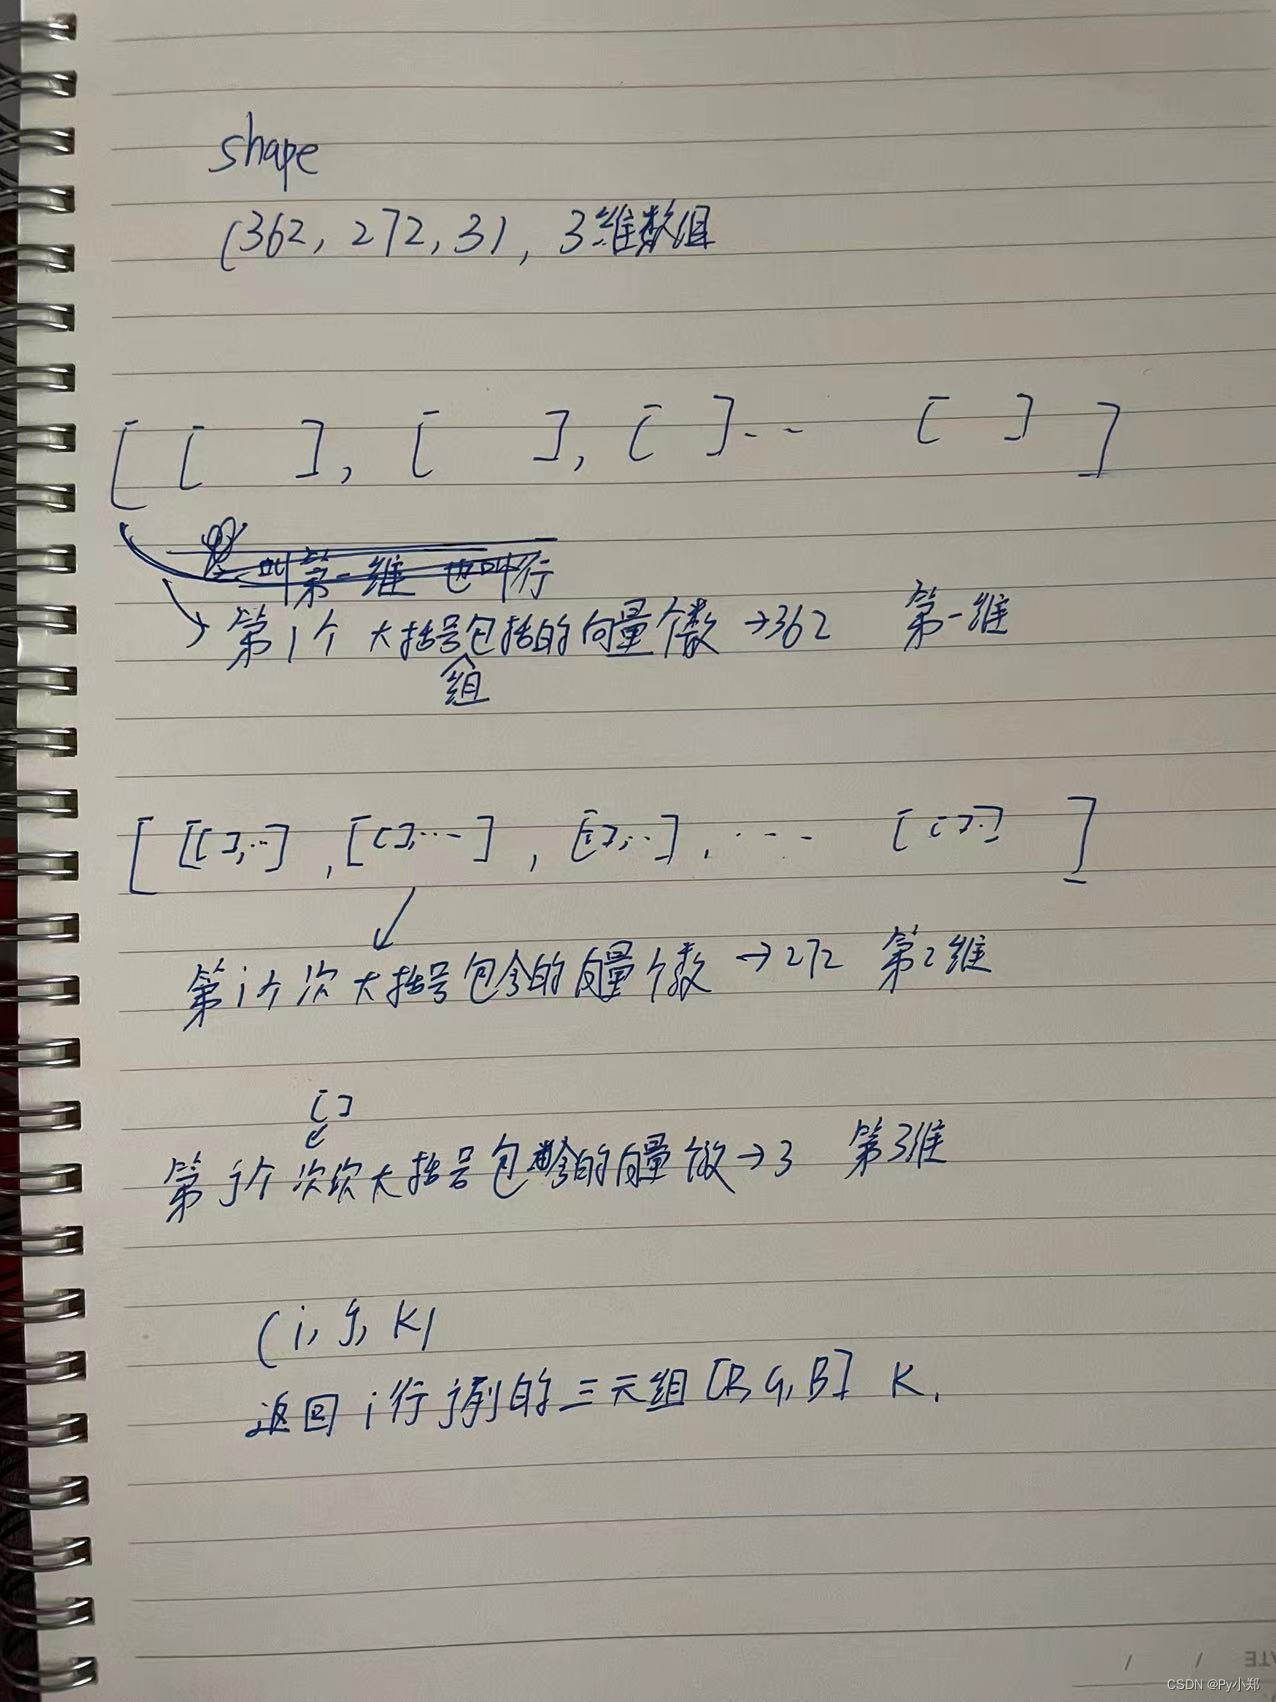 shape
(362, 272, 3), 3维数组
[ [ ], [ ], [ ]-- [ ] ]
叫第一维 也叫行
第1个 大括号包括的向量个数 →362 第一维
组
[ [[ ],..] , [[ ],...] , [[ ],..] , ... [[ ]..] ]
第i个次大括号包含的向量个数 →272 第2维
[ ]
第j个次次大括号包含的向量个数→3 第3维
(i, j, K)
返回i行j列的三元组[R,G,B] K.
ATE
/ /
CSDN @Py小郑